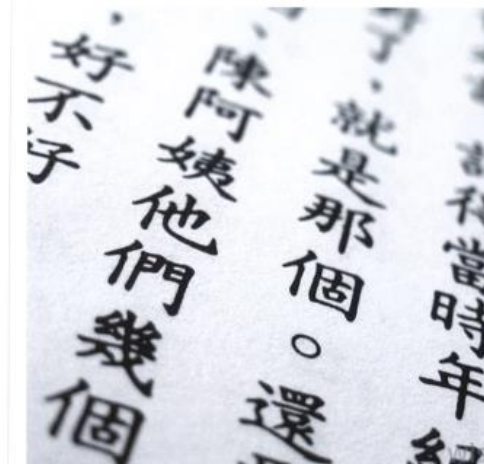 得當時年
了，就是那個。還
、陳阿姨他們幾個
，好不好